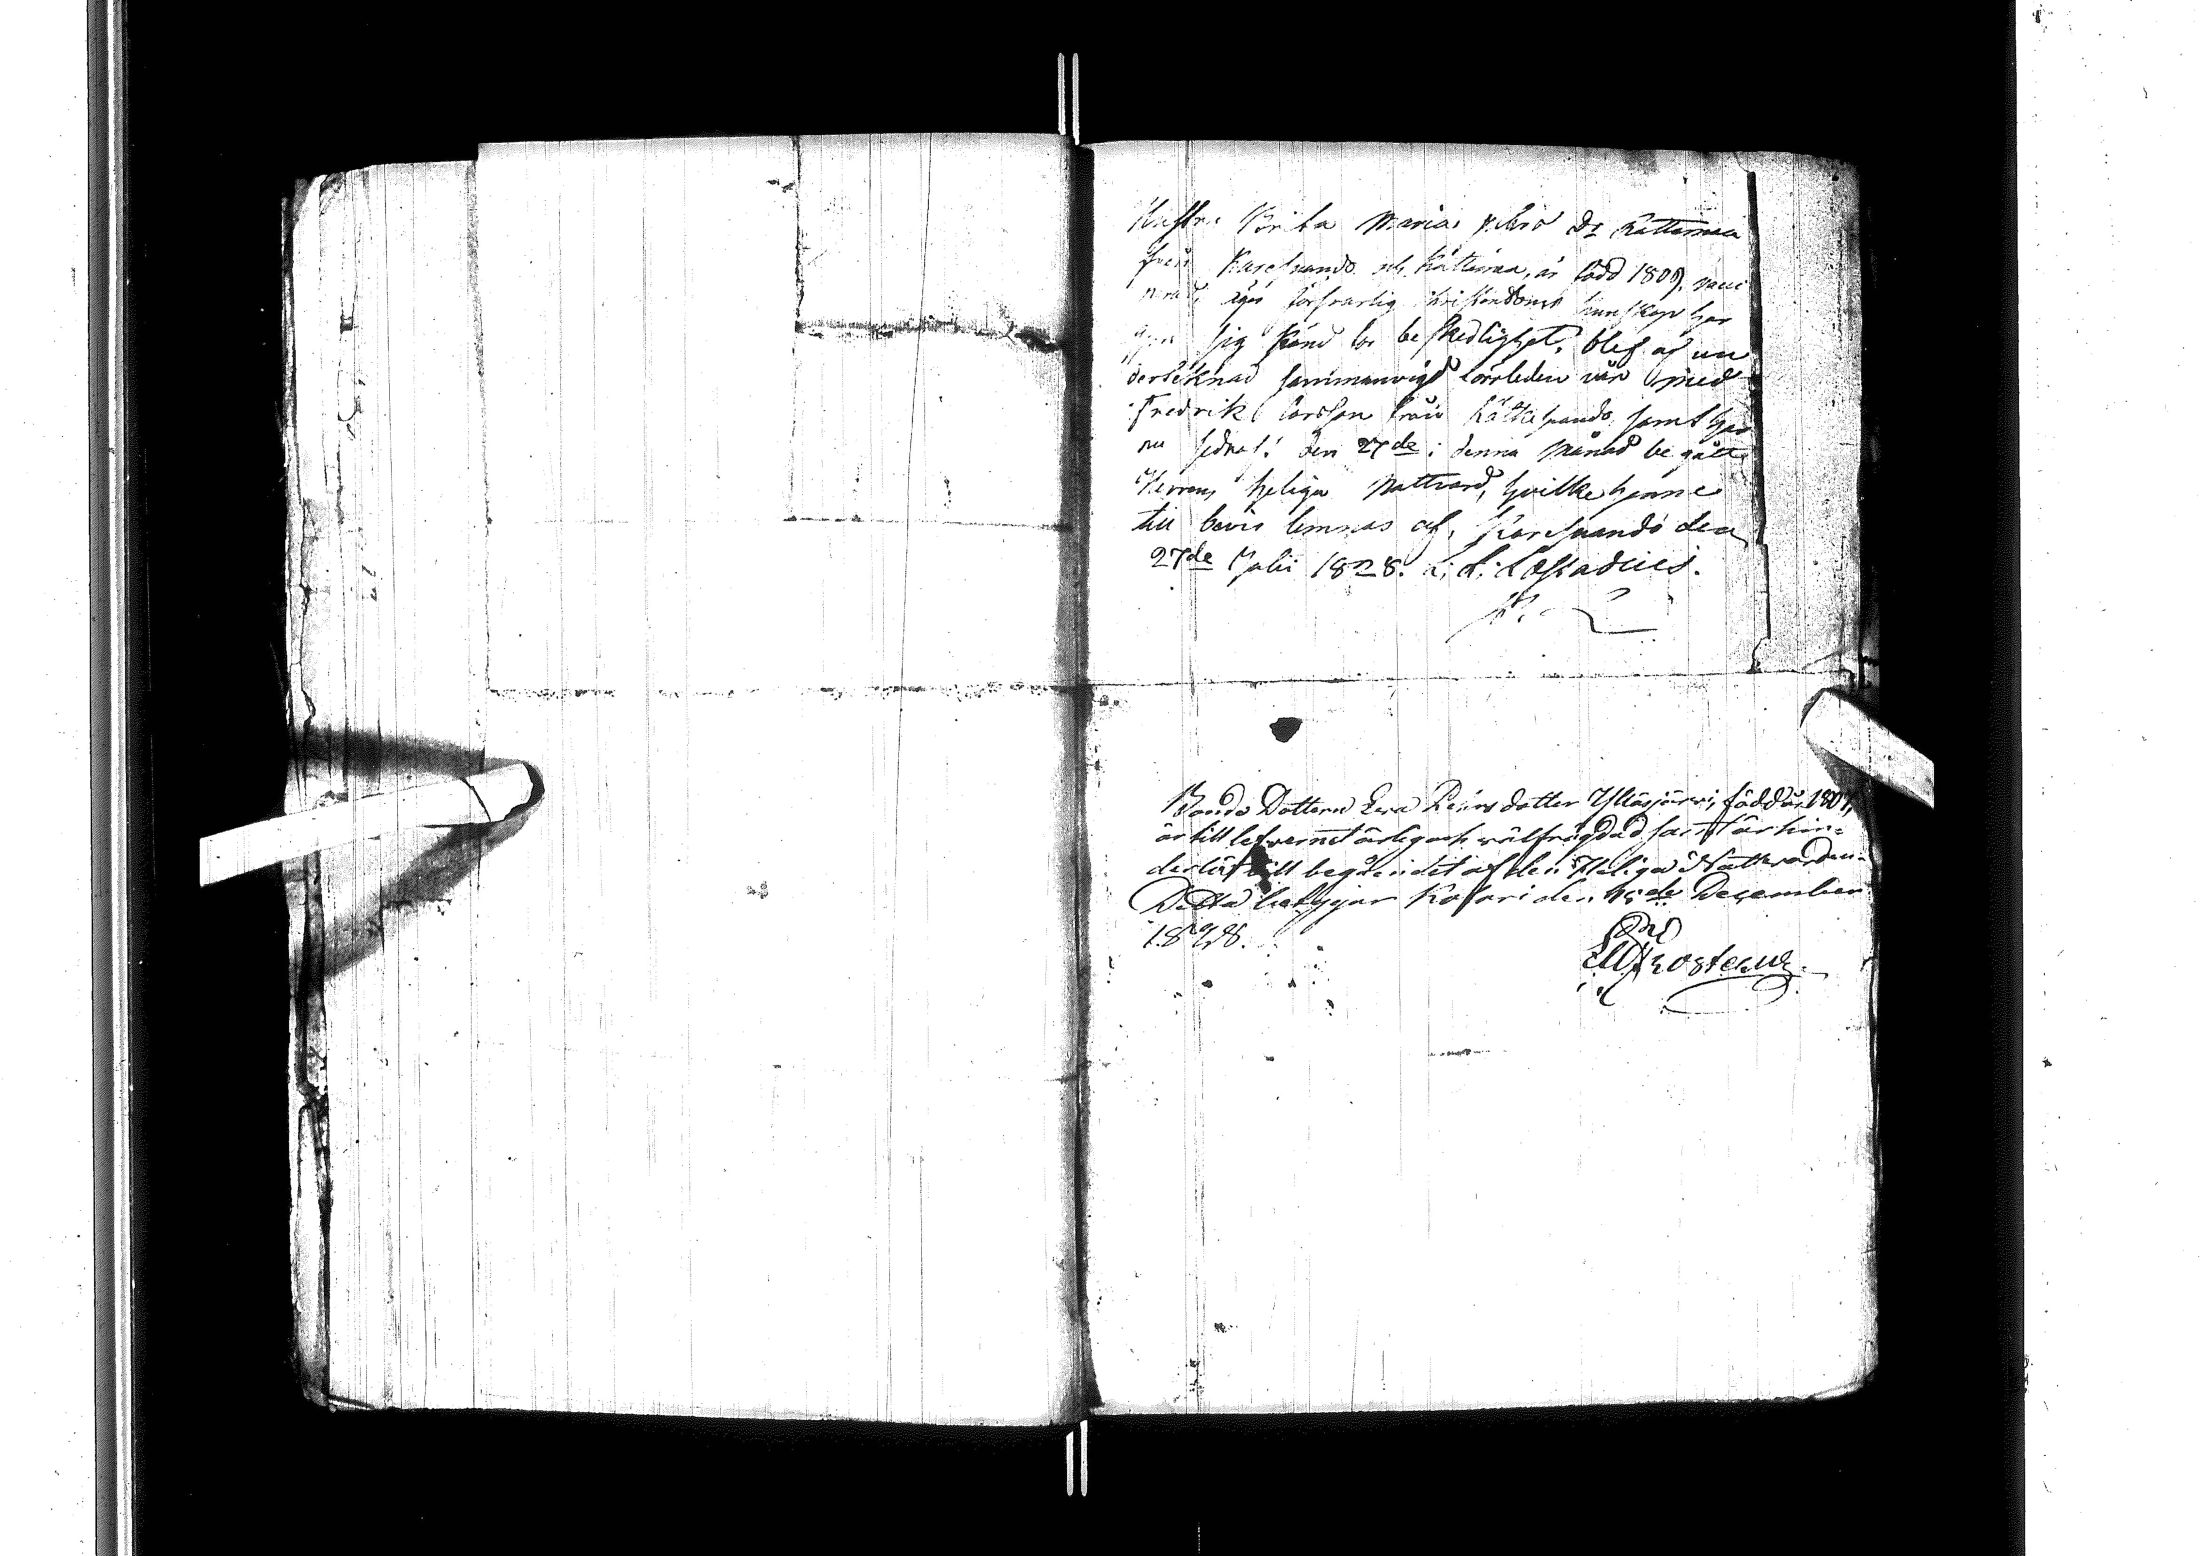 Hustru Brita Maria Dr Kattamaa
från Karesuando och Kattamaa, är född 1809, vacc
äger försvarlig christendoms kunskap har
sig känd för beskedlighet, blef af un
dertecknad sammanvigd förleden vår med
Fredrik Larsson från Kättesuando samt har
nu sednast den 27de i denna Månad begått
Herrans heliga Nattvard, hvilket henne
till bevis lemnas af, Karesuando den
27de Julii 1828. L. L. Læstadius.
Bonde Dottern Eva dotter Ylläsjärvi, född år 1807,
är till lefvernet ärlig och välfrägdad samt är hin=
derlös till begåendet af den Heliga Nattvarden.
Detta betygar Kolari den December
1828.